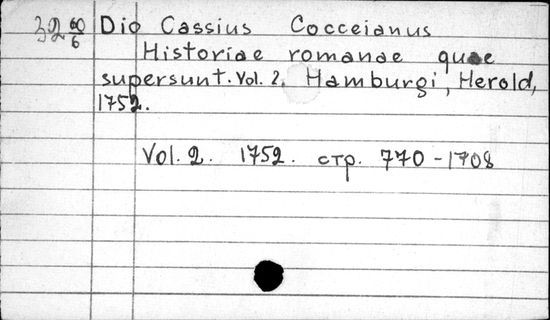 32 60/6 Dio Cassius Cocceianus
Historiae romanae quae
supersunt. Vol. 2. Hamburgi, Herold,
1752.
Vol. 2. 1752. стр. 770-1708